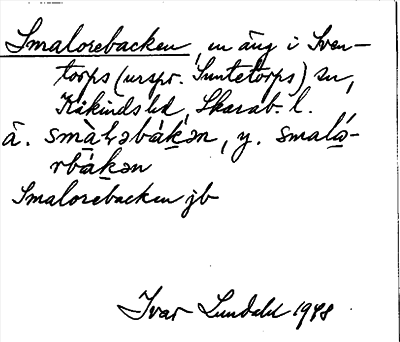 Smalorebacken, en äng i Sven-
torps (urspr. Suntetorps) sn,
Kåkinds hd, Skarab. l.
ä. smàɫəbákən, y. smalə-
rbákən
Smalorebacken jb
Ivar Lundahl 1948